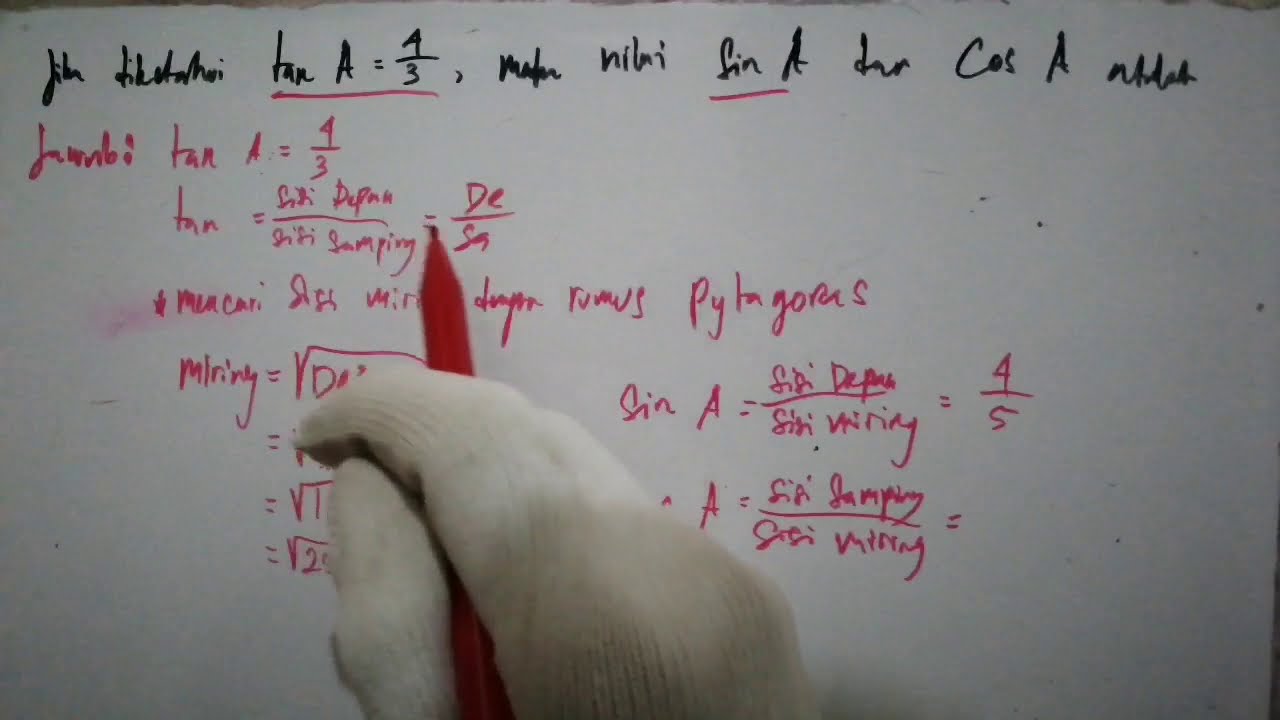 Jika diketahui tan A = 4/3, maka nilai Sin A dan Cos A adalah
Jawab: tan A = 4/3
tan = Sisi Depan / Sisi Samping = De / Sa
* mencari Sisi dengan rumus Pytagoras
Miring = √De²
= √
= √1
= √2
Sin A = Sisi Depan / Sisi miring = 4/5
A = Sisi Samping / Sisi miring =